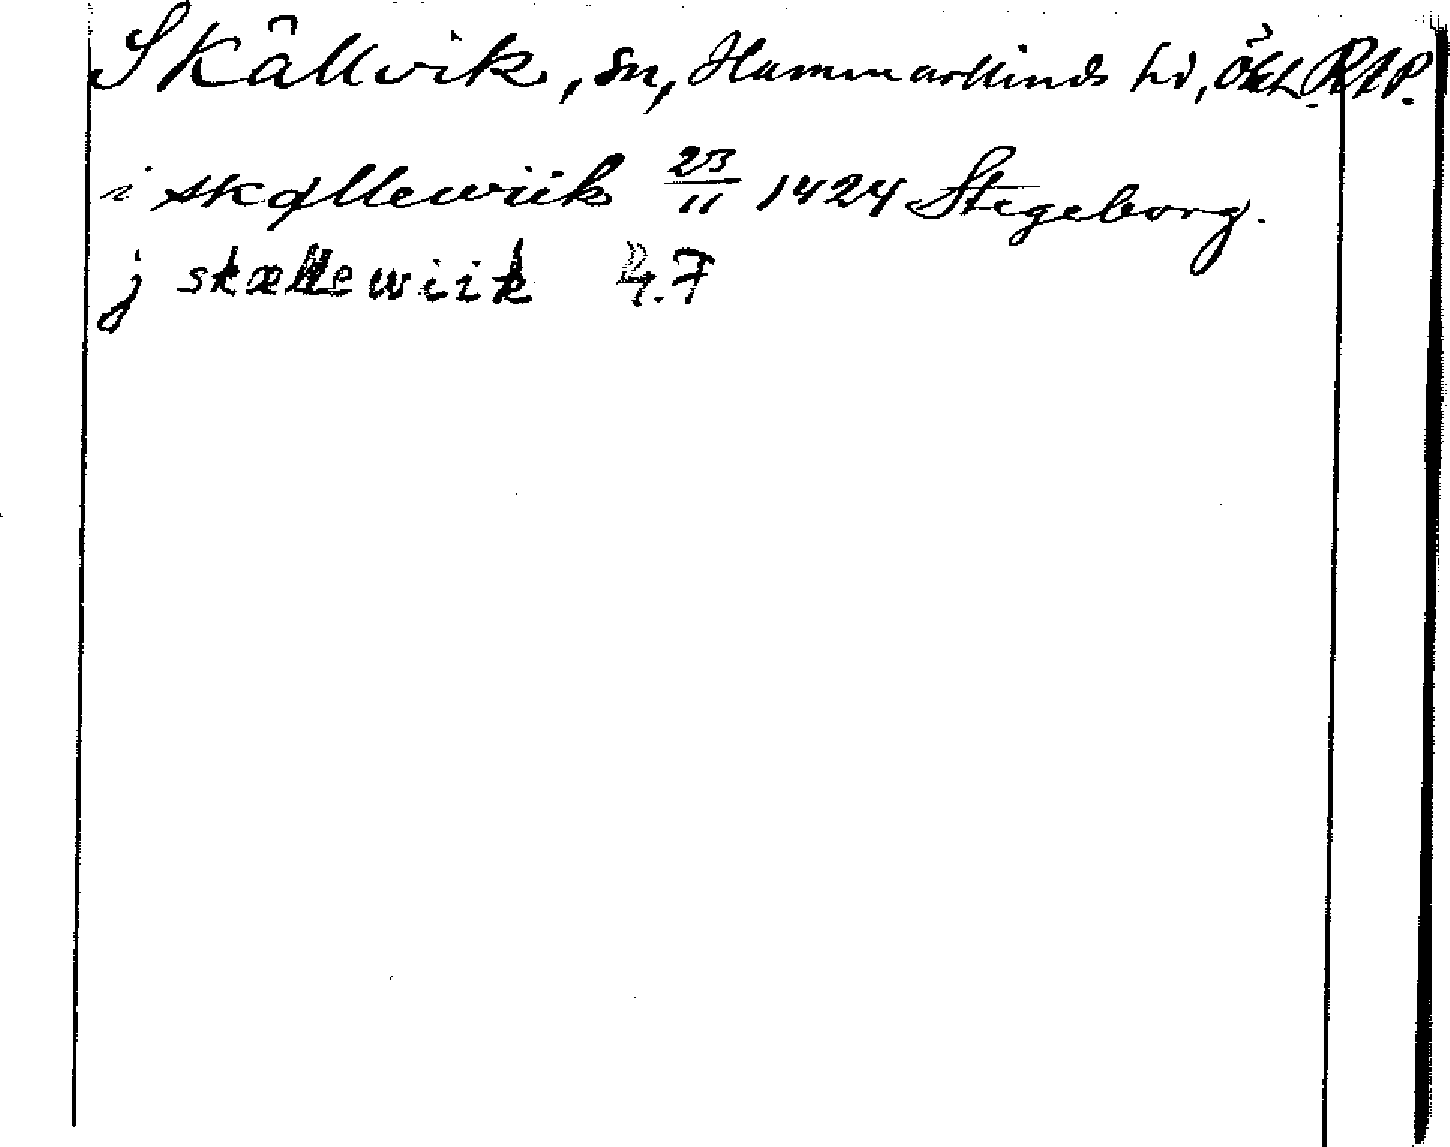 Skällvik, sn, Hammarkinds hd, Ögl. RAP.
i skællewiik 23/11 1424 Stegeborg.
j skællewiik R. 7